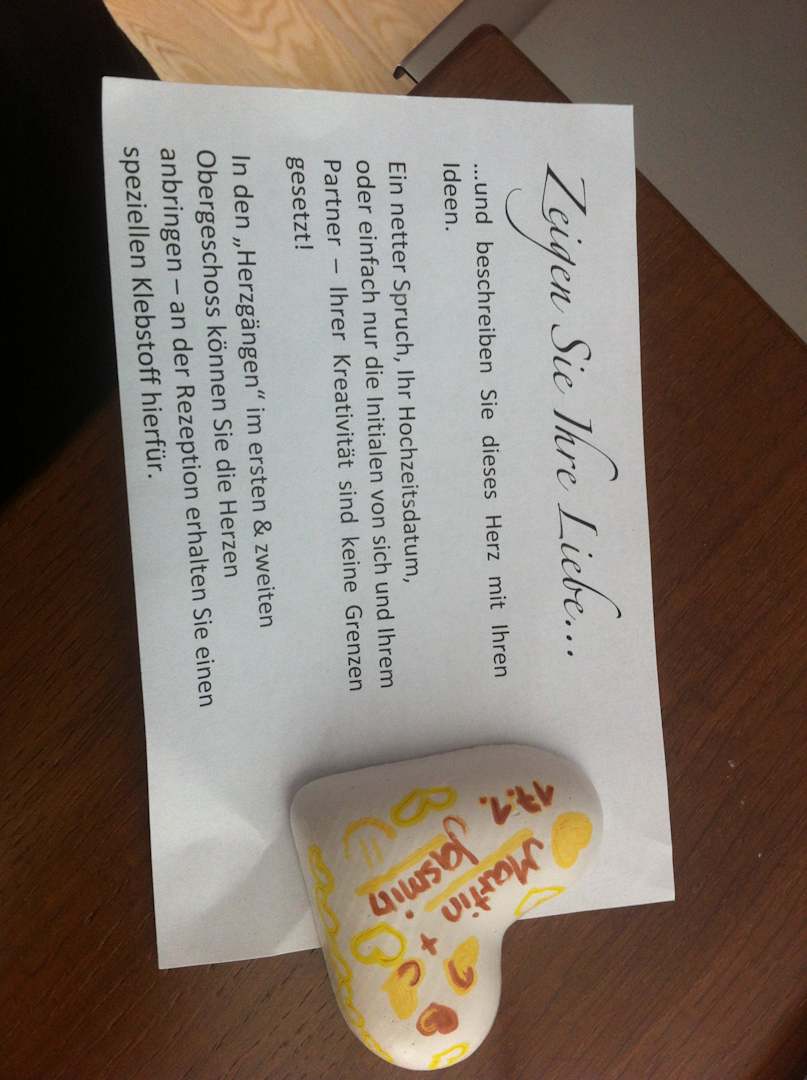 Zeigen Sie Ihre Liebe...
...und beschreiben Sie dieses Herz mit Ihren
Ideen.
Ein netter Spruch, Ihr Hochzeitsdatum,
oder einfach nur die Initialen von sich und Ihrem
Partner – Ihrer Kreativität sind keine Grenzen
gesetzt!
In den „Herzgängen“ im ersten & zweiten
Obergeschoss können Sie die Herzen
anbringen – an der Rezeption erhalten Sie einen
speziellen Klebstoff hierfür.
17.1.
Martin +
Jasmin